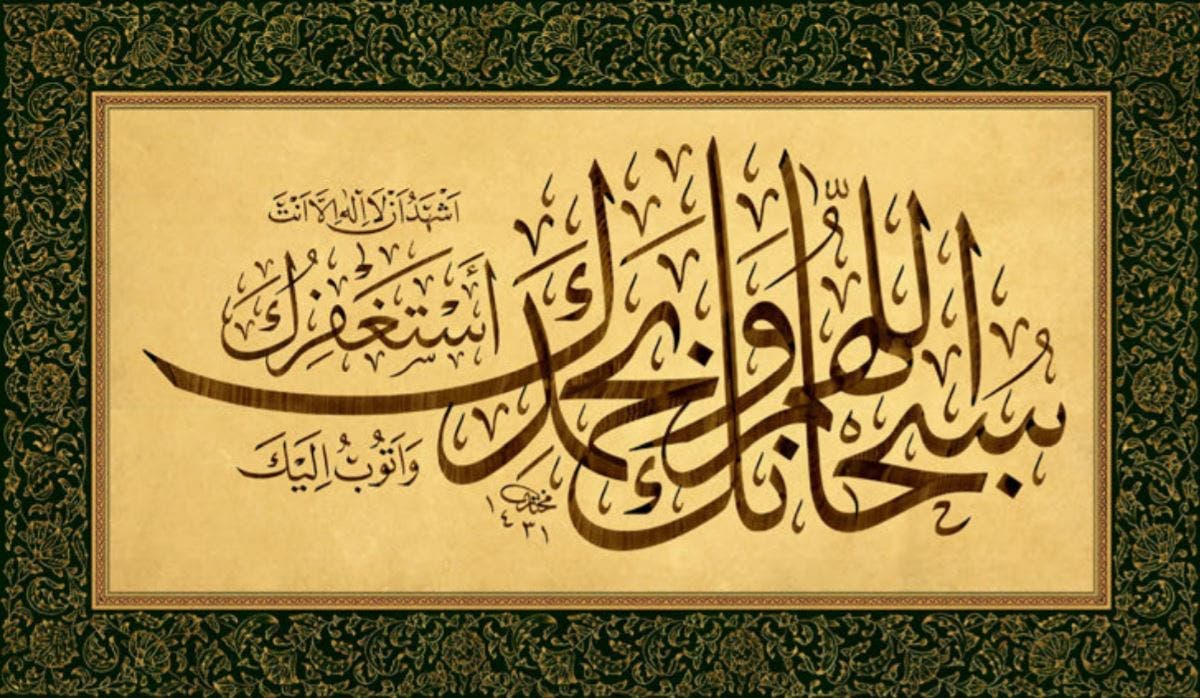 سُبحانك اللّهم وبحمدك
اَشْهَدُ اَنْ لَا اِلٰهَ اِلَّا اَنْتَ
أَسْتَغْفِرُكَ
وَاَتُوبُ اِلَيْكَ
١٤٣١